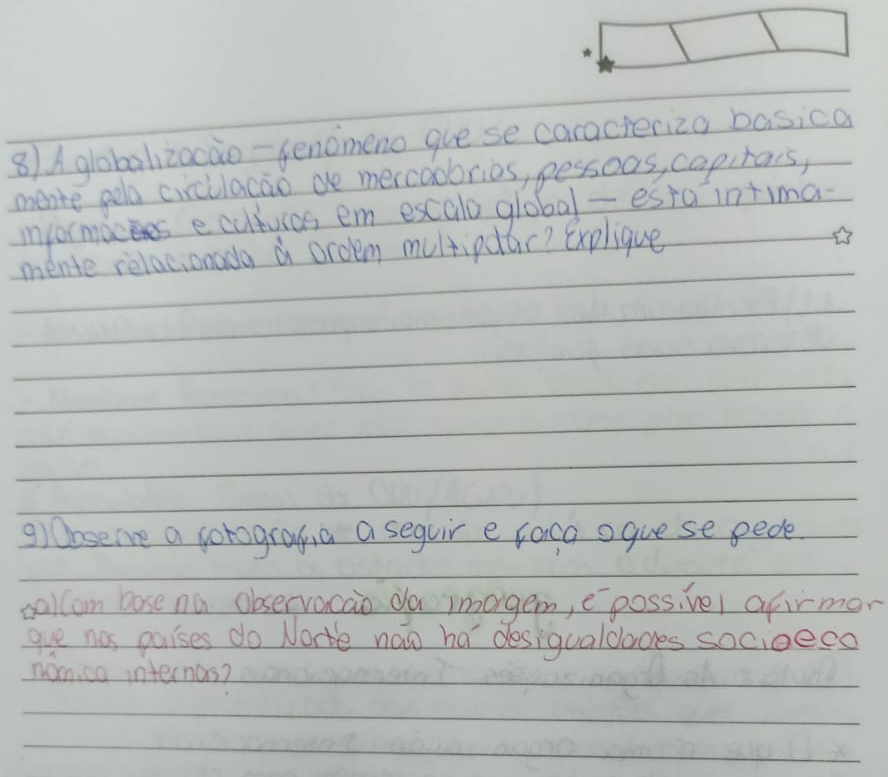 8) A globalização - fenômeno que se caracteriza basica
mente pela circulação de mercadorias, pessoas, capitais,
informações e culturas em escala global - está intima-
mente relacionada à ordem multipolar? Explique
9) Observe a fotografia a seguir e faça o que se pede.
a) Com base na observação da imagem, é possível afirmar
que nos países do Norte não há desigualdades socioeco
nômica internas?